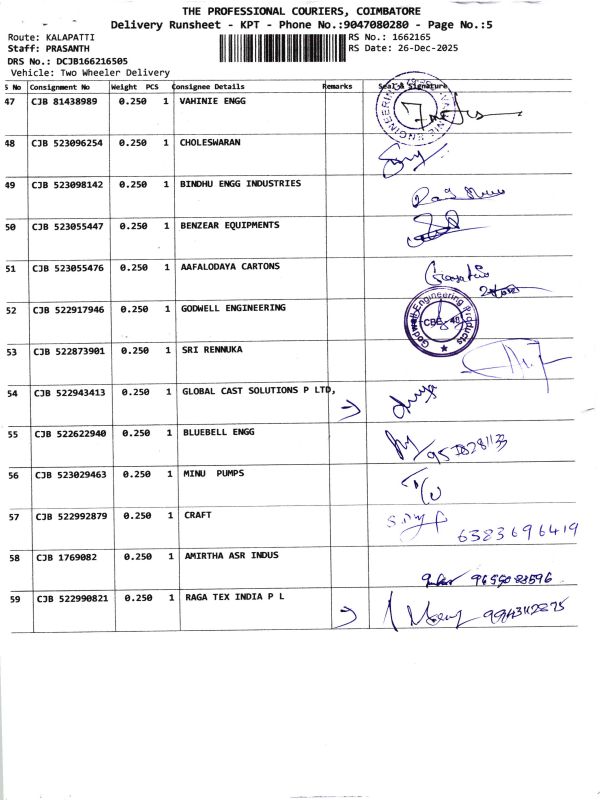 THE PROFESSIONAL COURIERS, COIMBATORE
Delivery Runsheet - KPT - Phone No.:9047080280 - Page No.:5
Route: KALAPATTI RS No.: 1662165
Staff: PRASANTH RS Date: 26-Dec-2025
DRS No.: DCJB166216505
Vehicle: Two Wheeler Delivery
S No Consignment No Weight PCS Consignee Details Remarks Seal & Signature
47 CJB 81438989 0.250 1 VAHINIE ENGG
48 CJB 523096254 0.250 1 CHOLESWARAN
49 CJB 523098142 0.250 1 BINDHU ENGG INDUSTRIES
50 CJB 523055447 0.250 1 BENZEAR EQUIPMENTS
51 CJB 523055476 0.250 1 AAFALODAYA CARTONS
52 CJB 522917946 0.250 1 GODWELL ENGINEERING
Godwell Engineering Products
CBE - 48
53 CJB 522873901 0.250 1 SRI RENNUKA
54 CJB 522943413 0.250 1 GLOBAL CAST SOLUTIONS P LTD,
55 CJB 522622940 0.250 1 BLUEBELL ENGG
56 CJB 523029463 0.250 1 MINU PUMPS
57 CJB 522992879 0.250 1 CRAFT
6383696419
58 CJB 1769082 0.250 1 AMIRTHA ASR INDUS
59 CJB 522990821 0.250 1 RAGA TEX INDIA P L